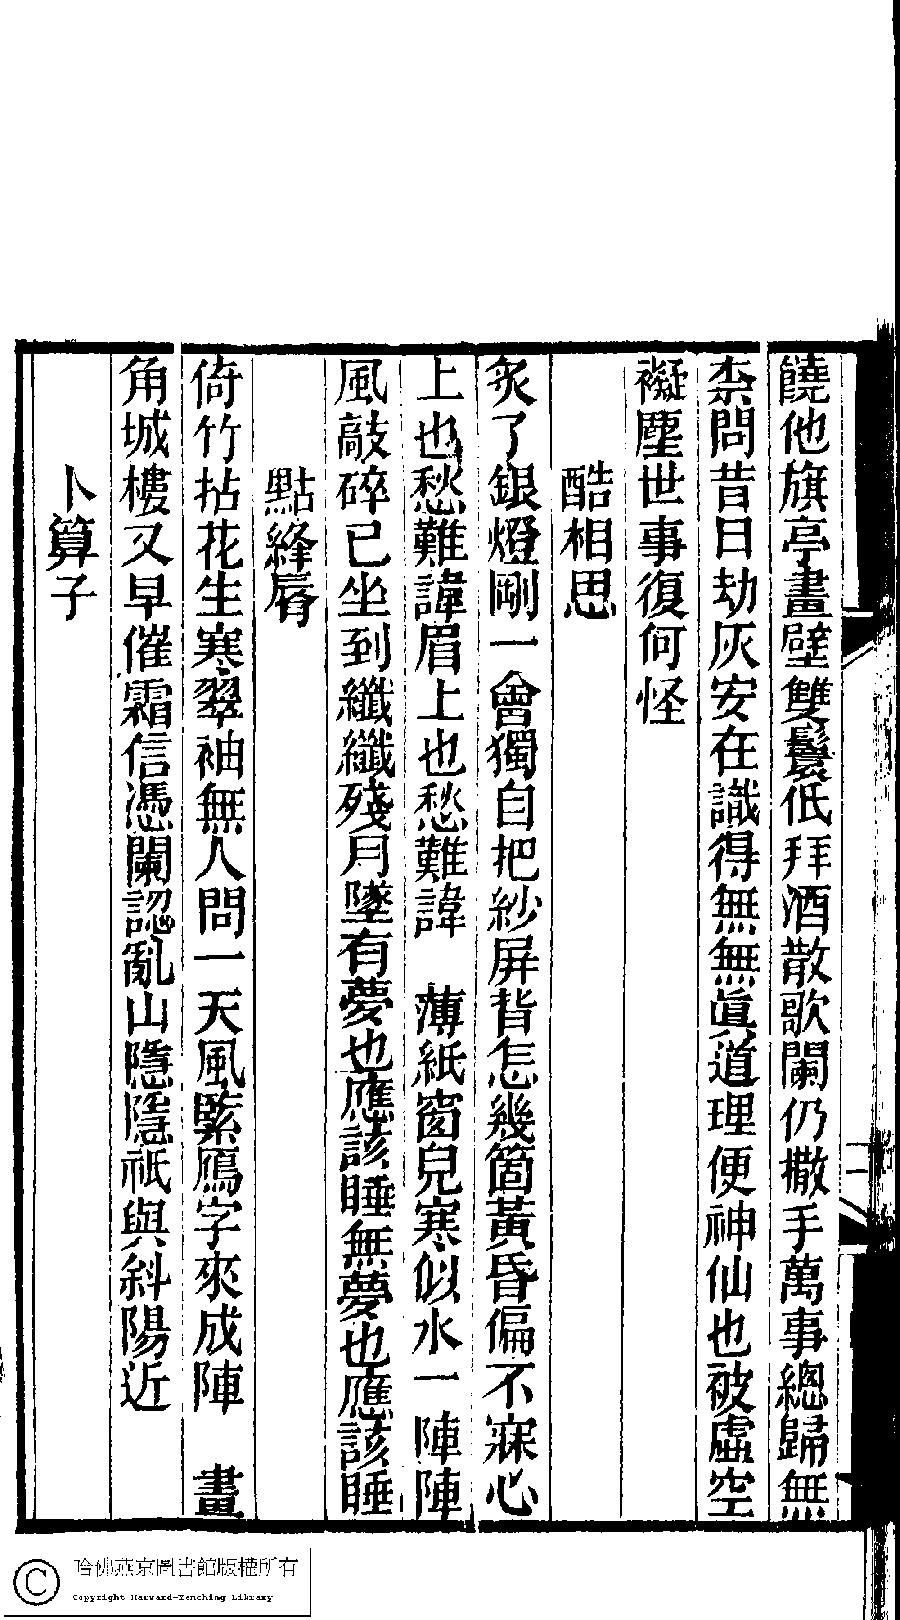 饒他旗亭畫壁雙鬟低拜酒散歌闌仍撒手萬事總歸無
柰問昔日劫灰安在識得無無眞道理便神仙也被虛空
礙塵世事復何怪
酷相思
炙了銀燈剛一會獨自把紗屏背怎幾箇黃昏偏不寐心
上也愁難諱眉上也愁難諱　薄紙窗兒寒似水一陣陣
風敲碎已坐到纖纖殘月墜有夢也應該睡無夢也應該睡
點絳脣
倚竹拈花生寒翠袖無人問一天風緊鴈字來成陣　畫
角城樓又早催霜信憑闌認亂山隱隱祇與斜陽近
卜算子
哈佛燕京圖書館版權所有
Copyright Harvard-Yenching Library